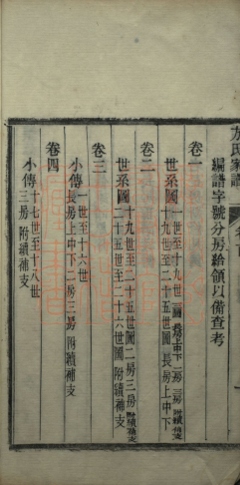 方氏家譜
編譜字號分房給領以備查考
卷一
世系圖一世至十九世圖
十九世至二十五世圖長房上中下
卷二
世系圖十九世至二十五世圖二房三房附續補支
二十五世至二十六世圖附續補支
卷三
小傳一世至十六世
長房上中下二房三房附續補支
卷四
小傳十七世至十八世
三房附續補支